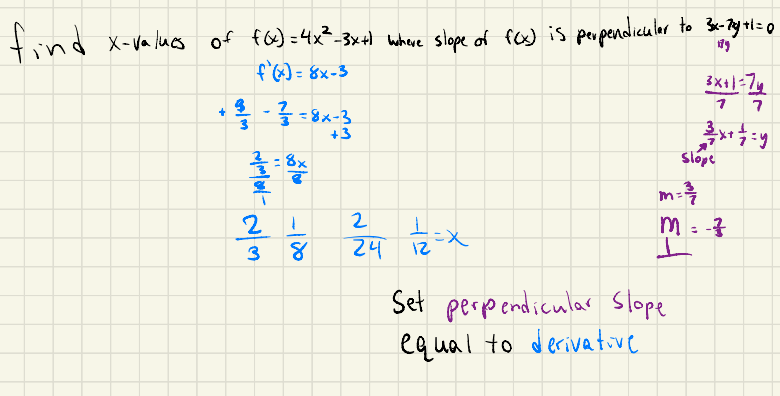 find x-values of f(x) = 4x² - 3x+1 where slope of f(x) is perpendicular to 3x-7y+1=0
f'(x) = 8x-3
+ 9/3 - 7/3 = 8x-3
+3
2/3 = 8x
8/1 8
2/3 1/8 2/24 1/12 = x
+7y
3x+1 = 7y
7 7
3/7 x + 1/7 = y
slope
m = 3/7
m⊥ = -7/3
Set perpendicular slope
equal to derivative